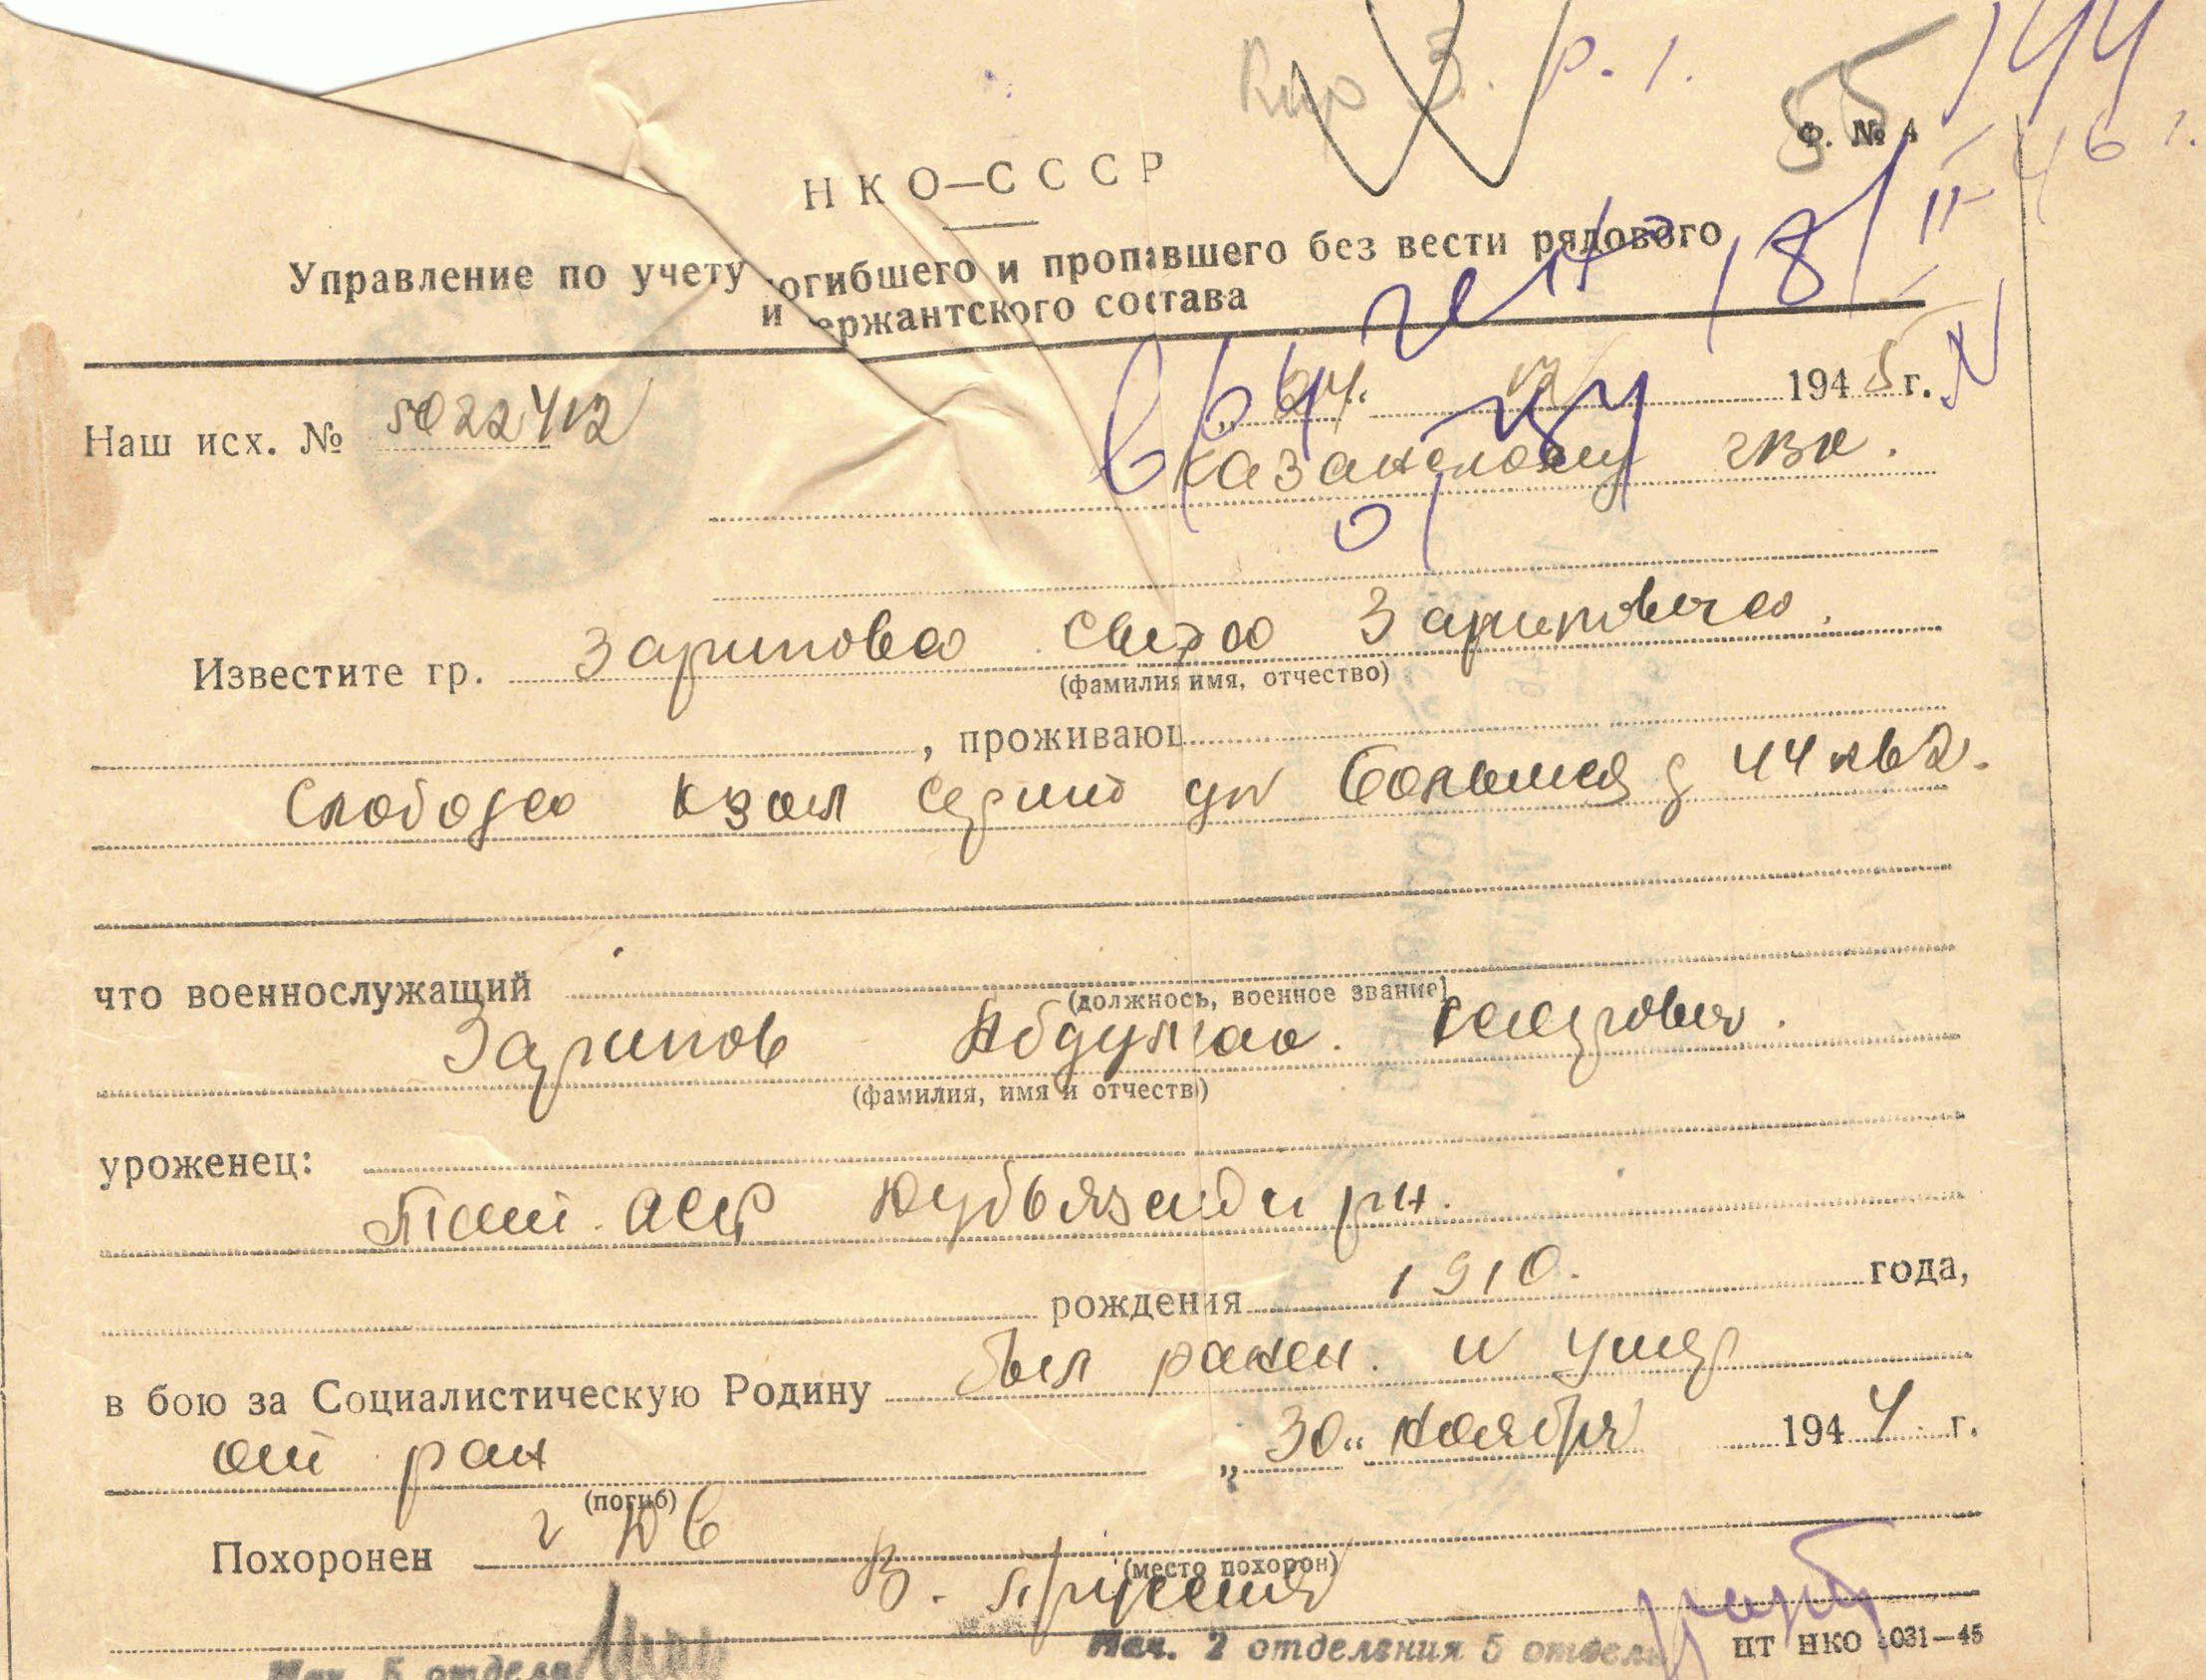 р. 1.
55
144
Ф. № 4
46 г.
НКО—СССР
Управление по учету погибшего и пропавшего без вести рядового
и сержантского состава
Наш исх. № 5022412
„24“ 1945 г.
Казанскому гвк.
Известите гр. Зарипова Зариповича.
(фамилия имя, отчество)
, проживающ
Слобода Кзыл ул Большая д 44 кв 2.
что военнослужащий
(должнось, военное звание)
Зарипов Абдулхак.
(фамилия, имя и отчеств)
уроженец:
Тат. АССР рн.
рождения 1910. года,
в бою за Социалистическую Родину был ранен. и умер
от ран „30“ ноября 1944 г.
(погиб)
Похоронен
(место похорон)
В. Пруссия
Нач. 5 отдела
Нач. 2 отделения 5 отдела
ЦТ НКО 1031—45